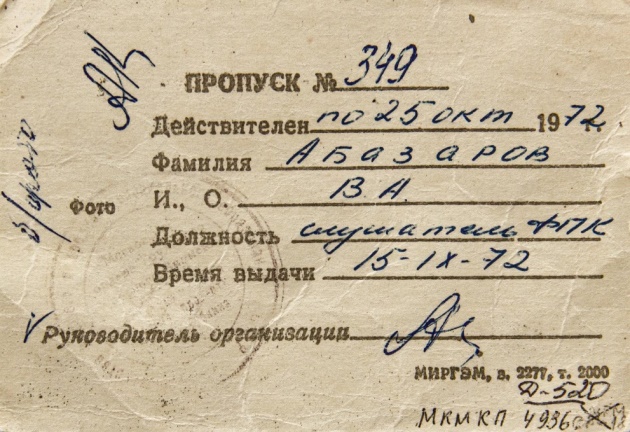 ПРОПУСК № 349
Действителен по 25 окт 1972 г.
Фамилия АБАЗАРОВ
И., О. В.А.
Фото
б/фото
Должность слушатель ФПК
Время выдачи 15-IX-72
Руководитель организации
МИРГЭМ, з. 2277, т. 2000
Д-520
МКМКП 4936